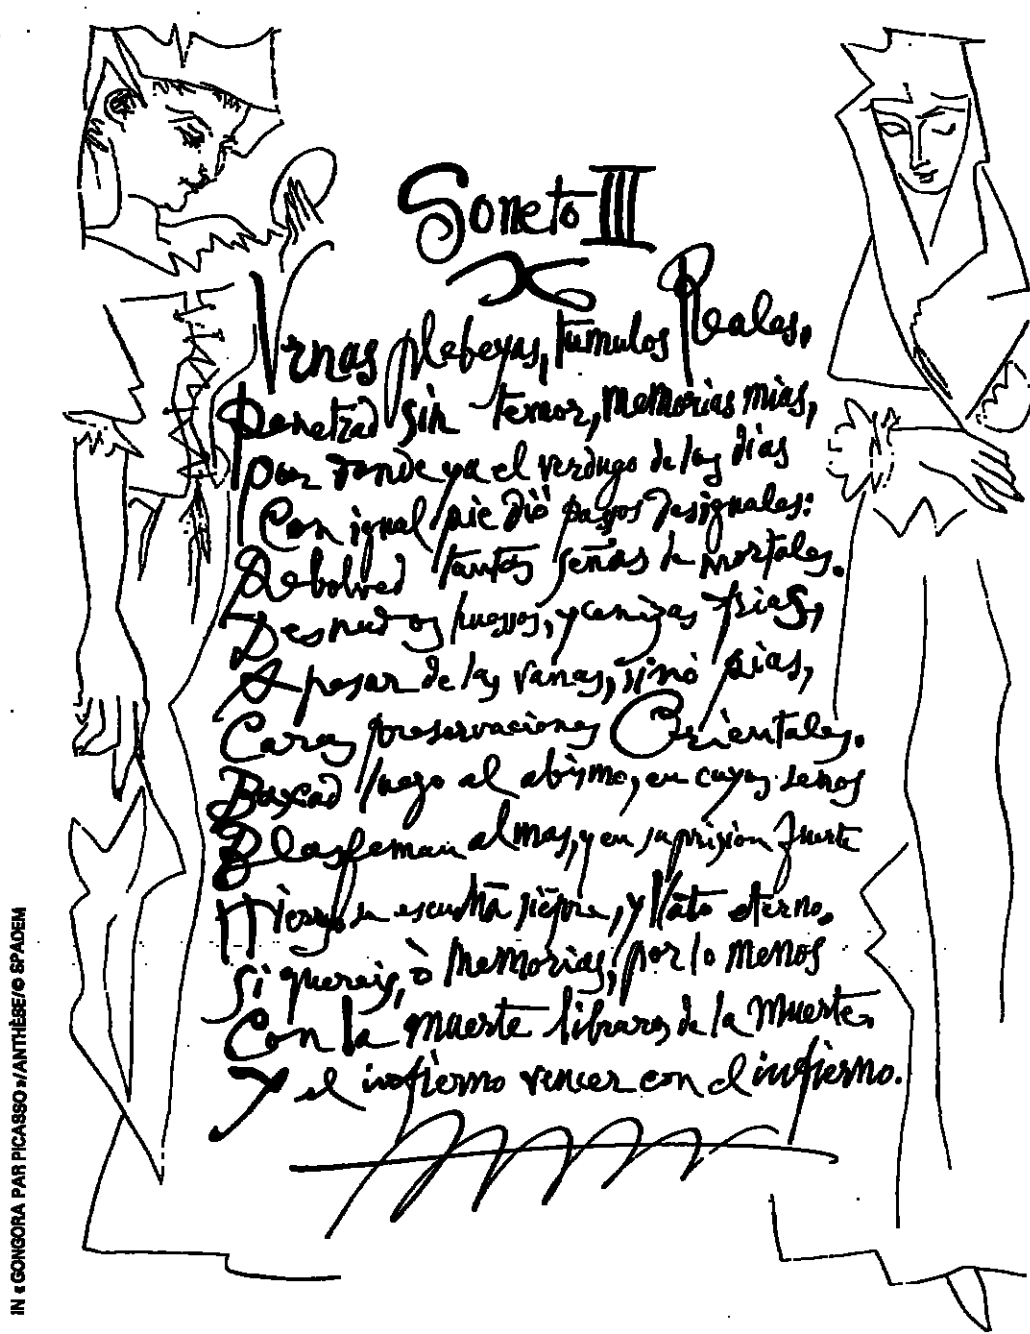 Soneto III
Vrnas plebeyas, tumulos Reales,
Penetrad sin temor, memorias mias,
por donde ya el verdugo de los dias
Con igual pie diò passos desiguales:
Rebolved tantas señas de mortales.
Desnudos huessos, y cenizas frias,
A pesar de las vanas, sinò pias,
Caras preservaciones Orientales.
Baxad luego al abismo, en cuyos senos
Blasfeman almas, y en su prision fuerte
Hierros se escuchã siẽpre, y llãto eterno,
Si quereis, ò memorias, por lo menos
Con la muerte libraros de la muerte,
Y el infierno vencer con el infierno.
IN «GONGORA PAR PICASSO»/ANTHÈSE/© SPADEM